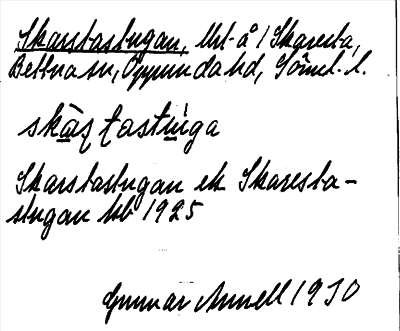 Skarstastugan, lht å 1 Skaresta,
Bettna sn, Oppunda hd, Söml. l.
skàʂʈastùga
Skarstastugan ek Skaresta-
stugan hb 1925
Gunnar Annell 1930